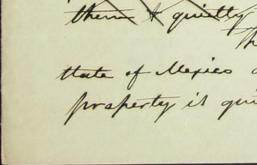 them & quietly
Th
State of Mexico
property is qui